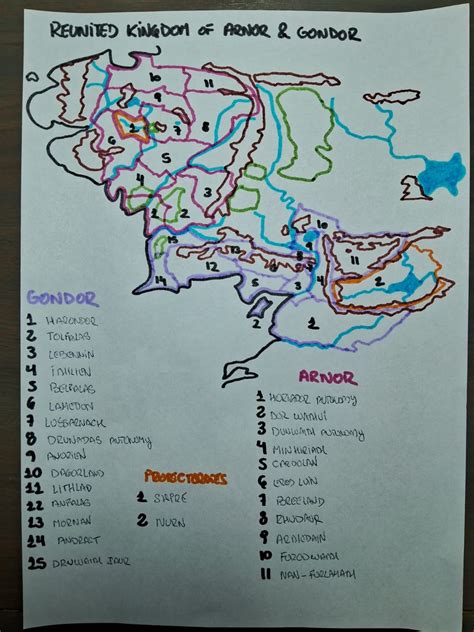 REUNITED KINGDOM OF ARNOR & GONDOR
10
11
9
1
7
8
6
5
4
3
2
2
1
15
13
12
14
10
9
8
11
7
6
5
3
4
2
2
1
GONDOR
1 HARONDOR
2 TOLFALAS
3 LEBENNIN
4 ITHILIEN
5 BELFALAS
6 LAMEDON
7 LOSSARNACH
8 DRUNADAS AUTONOMY
9 ANORIEN
10 DAGORLAND
11 LITHLAD
12 ANFALAS
13 MORNAN
14 ANDRAST
15 DRUWAITH IAUR
PROTECTORATES
1 SHIRE
2 NURN
ARNOR
1 AUTONOMY
2
3 DUNWAITH AUTONOMY
4 MINHIRIATH
5 CARDOLAN
6 ERED LUIN
7 BREELAND
8 RHUDAUR
9 ARTHEDAIN
10 FORODWAITH
11 NAN-